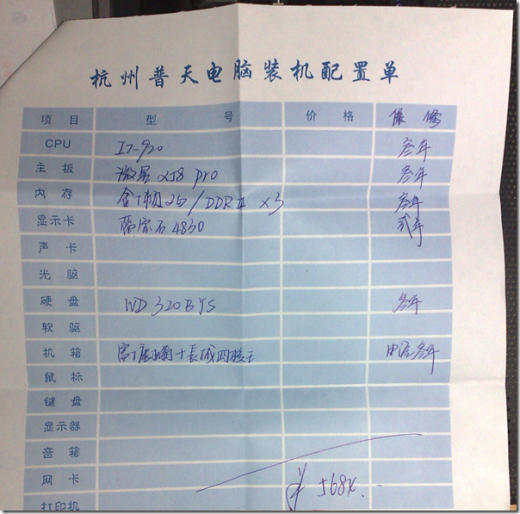 杭州普天电脑装机配置单
项目 型号 价格 保修
CPU I7-920 叁年
主板 微星 X58 pro 叁年
内存 金士顿 2G/DDRIII X3 叁年
显示卡 蓝宝石 4830 贰年
声卡
光驱
硬盘 WD 320BYS 叁年
软驱
机箱 + 长城四核王 电源叁年
鼠标
键盘
显示器
音箱
网卡 ¥
打印机